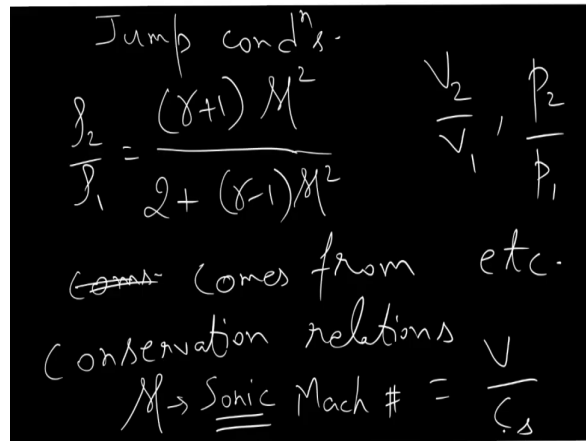 Jump condⁿs.
ρ₂/ρ₁ = (γ+1) M² / 2 + (γ-1)M²
V₂/V₁ , p₂/p₁
comes from etc.
Conservation relations
M → Sonic Mach # = V/Cₛ